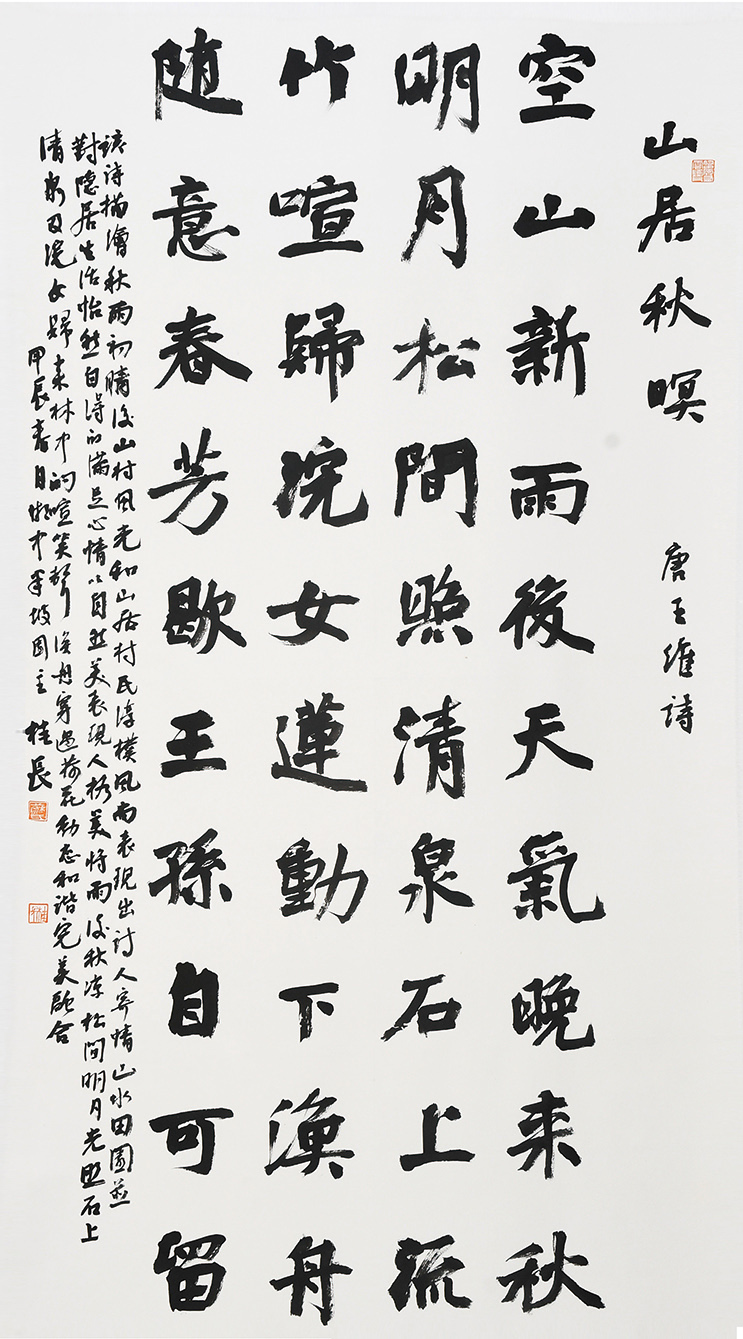 山居秋暝 唐王維詩
空山新雨後天氣晚來秋
明月松間照清泉石上流
竹喧歸浣女蓮動下漁舟
随意春芳歇王孫自可留
該诗描繪秋雨初晴後山村風光和山居村民淳樸風尚表現出诗人寄情山水田園並
對隱居生活怡然自得的滿足心情以自然美表現人格美将雨後秋凉松間明月光照石上
清泉及浣女歸来林中的喧笑聲漁舟穿過荷花動态和谐完美融合
甲辰春月 中半坡園主 桂長